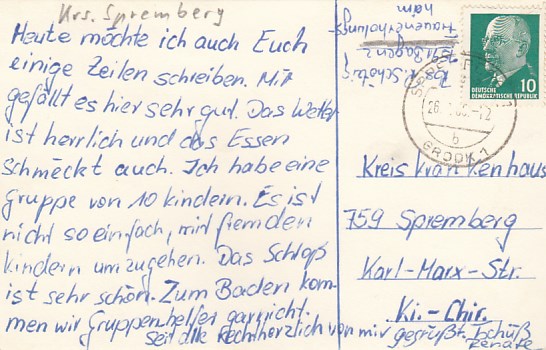 Krs. Spremberg
Heute möchte ich auch Euch
einige Zeilen schreiben. Mir
gefällt es hier sehr gut. Das Wetter
ist herrlich und das Essen
schmeckt auch. Ich habe eine
Gruppe von 10 kindern. Es ist
nicht so einfach, mit fremden
kindern umzugehen. Das Schloß
ist sehr schön. Zum Baden kom-
men wir Gruppenhelfer garnicht.
Seit alle Recht herzlich von mir gegrüßt. Tschüß
Renate
heim
Frauenerholungs
DEUTSCHE
DEMOKRATISCHE REPUBLIK
10
26.
-12
b
1
Kreis Krankenhaus
759 Spremberg
Karl-Marx-Str.
Ki.-Chir.